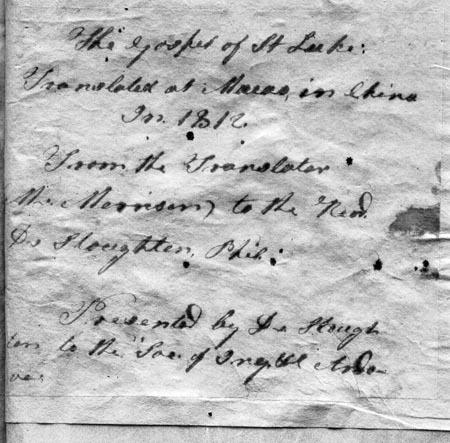 The Gospel of St Luke:
Translated at Macao, in China
In. 1812.
From the Translator
(Mr. Morrison) to the Revd.
Dr Staughton, Phil:
Presented by Dr Staugh
ton to the Soc of Inq